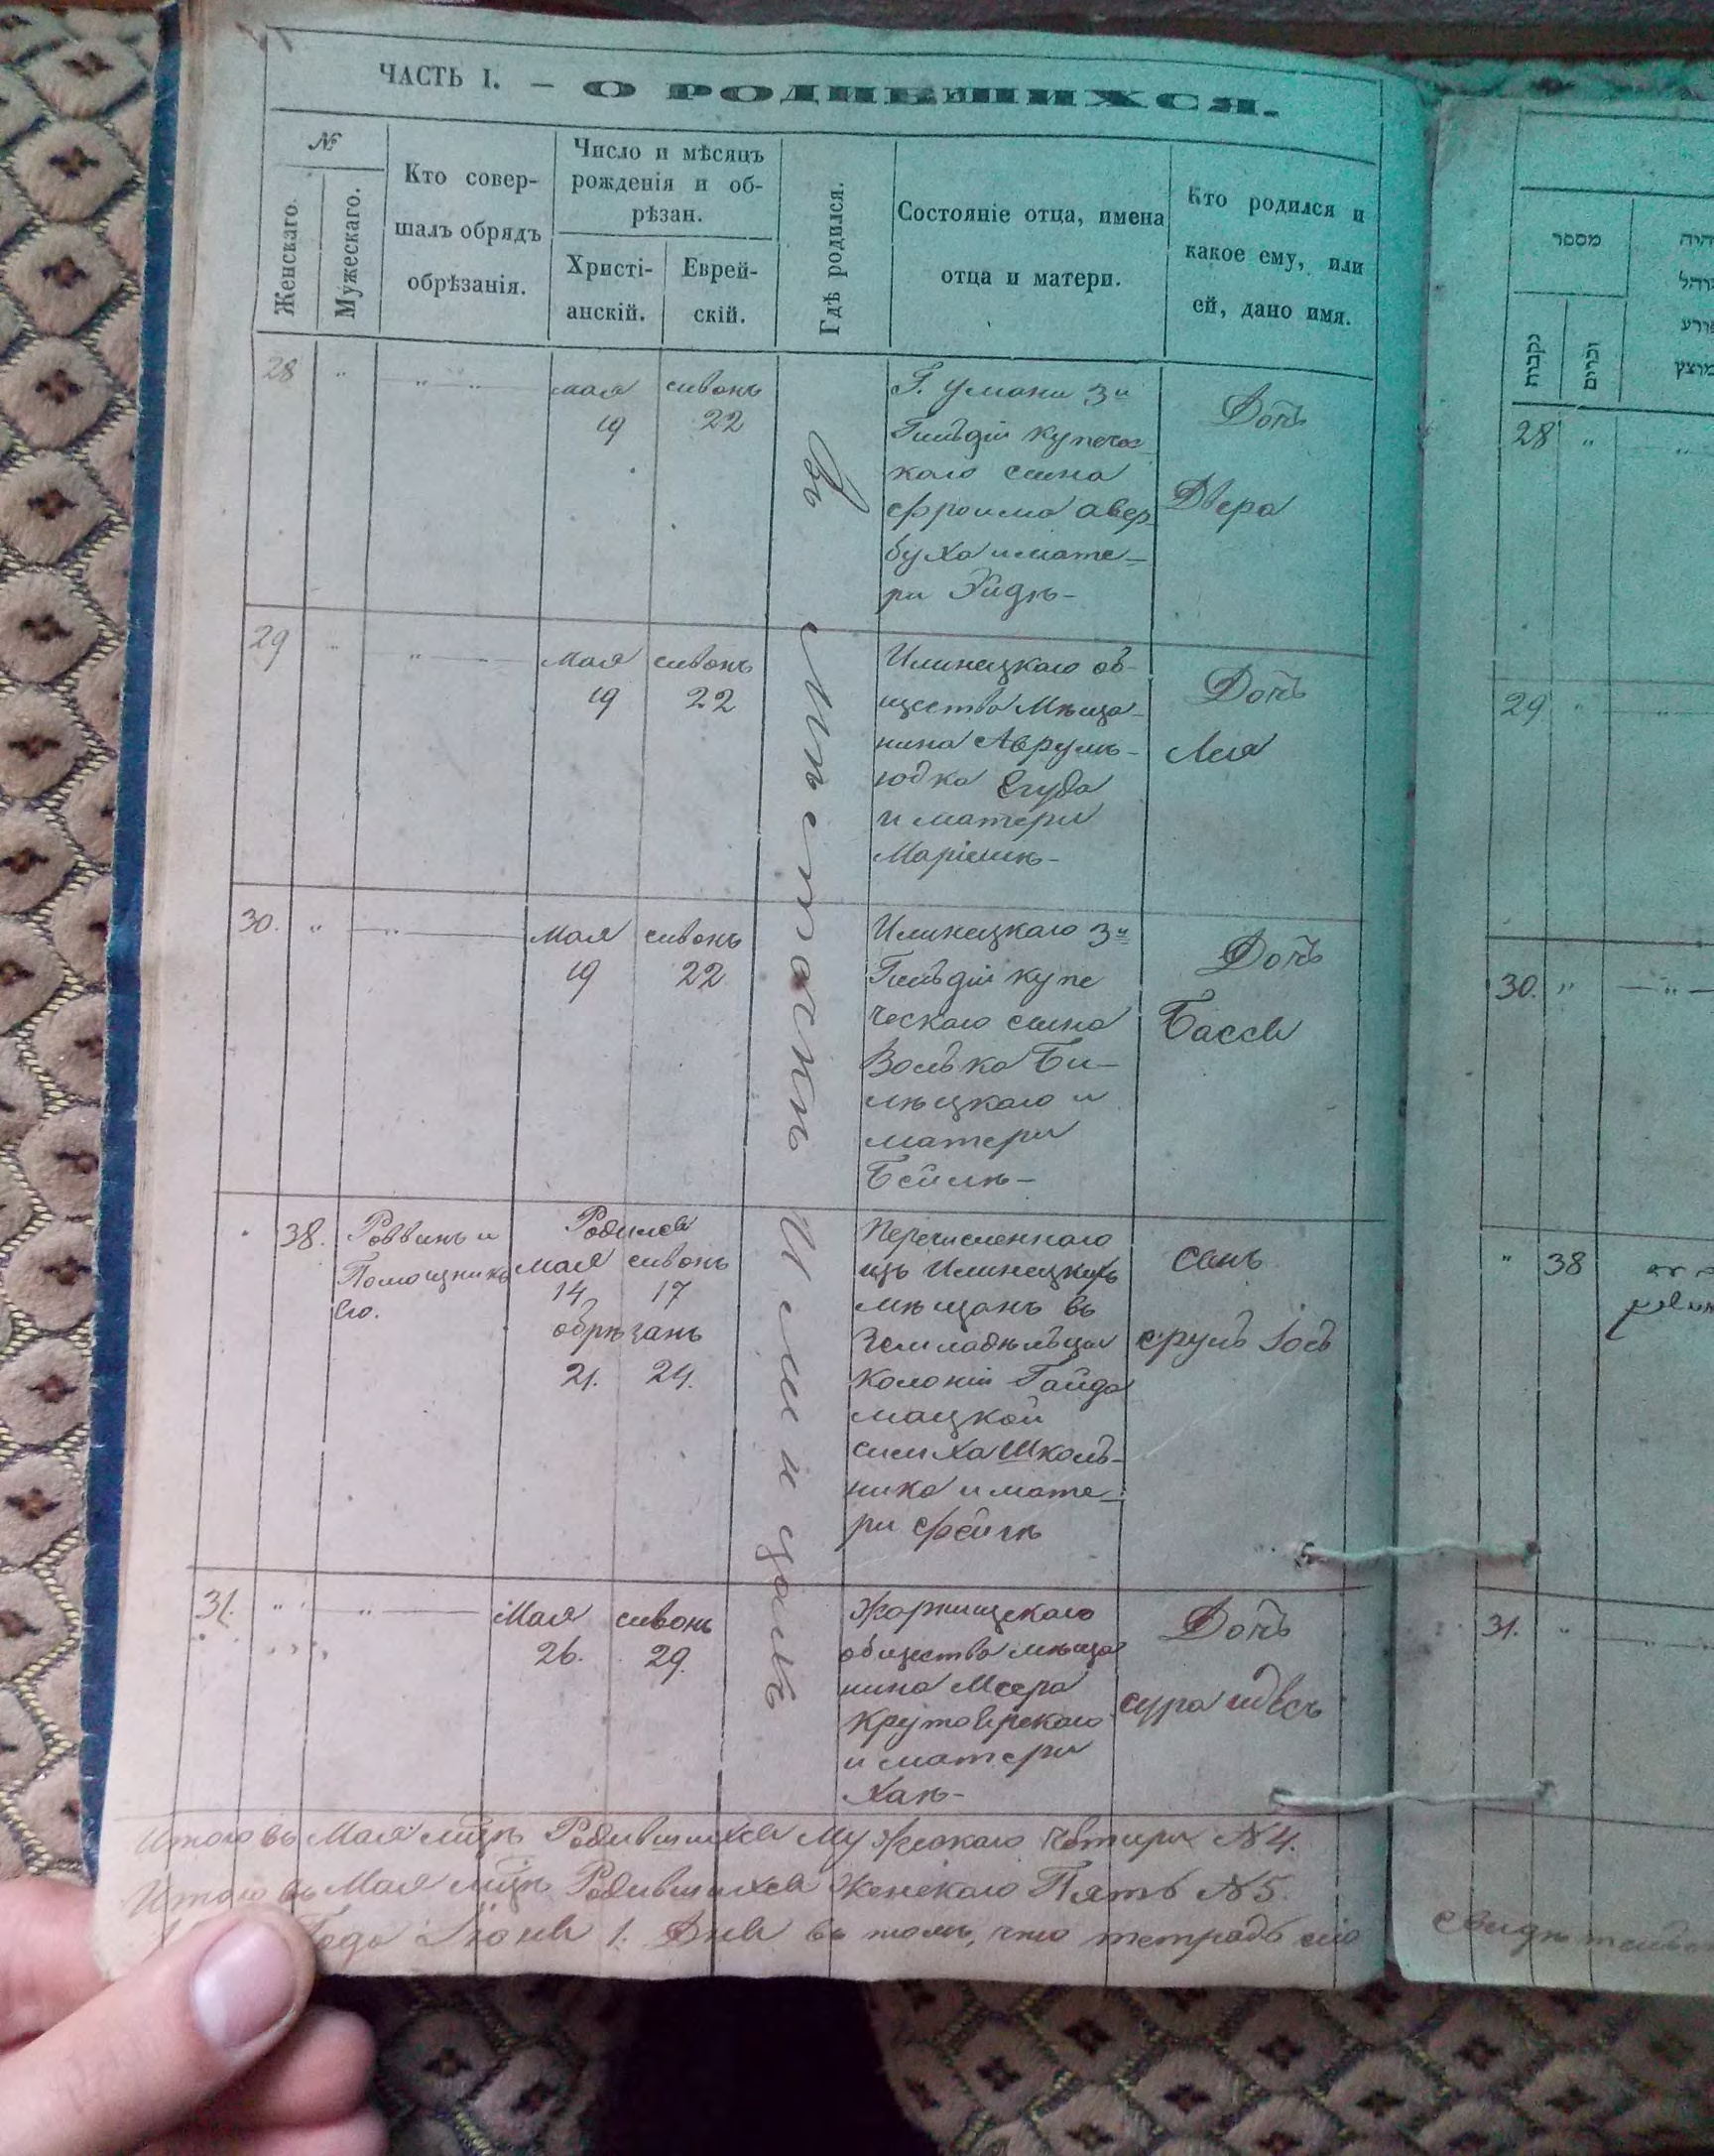 ЧАСТЬ I. — О РОДИВШИХСЯ.
№
Женскаго.
Мужескаго.
Кто совер-
шалъ обрядъ
обрѣзанія.
Число и мѣсяцъ
рожденія и об-
рѣзан.
Христі-
анскій.
Еврей-
скій.
Гдѣ родился.
Состояніе отца, имена
отца и матери.
Кто родился и
какое ему, или
ей, дано имя.
Въ Мѣстечкѣ Илинцахъ
28 " " — "
мая сивонъ
19 22
Г. Умани 3й
Гильдіи купечес
каго сина
Фроима Авер
буха и мате-
ри Хидѣ-
Дочь
Двера
29 " " —
мая сивонъ
19 22
Илинецкаго об-
щества Мѣща-
нина Аврумъ-
юдка
и матери
Маріимѣ-
Дочь
Лея
30. " — " —
мая сивонъ
19 22
Илинецкаго 3й
Гильдіи купе
ческаго сина
Волька Би-
лѣцкаго и
матери
Бейлѣ-
Дочь
Бася
38. Раввинъ и
Помощникъ
Его.
Родился
мая сивонъ
14 17
обрѣзанъ
21. 24.
Перечисленнаго
изъ Илинецкихъ
мѣщанъ въ
Земладѣльцы
Колоніи Гайда
мацкой
Симха Школь-
ника и мате-
ри Фейгѣ
Сынъ
Сруль Іось
31. " " —
Мая сивонъ
26. 29.
Жорнищскаго
общества мѣща
нина Меера
и матери
Ханѣ-
Дочь
Сура
Итого въ Мая мцѣ Родившихся Мужескаго Четыри N 4.
Итого въ Мая мцѣ Родившихся Женскаго Пять N 5.
Года Іюня 1. Дня въ томъ, что тетрадь сію
מספר
נקבות
זכרים
28 "
29 "
30. " — " —
" 38
31. "